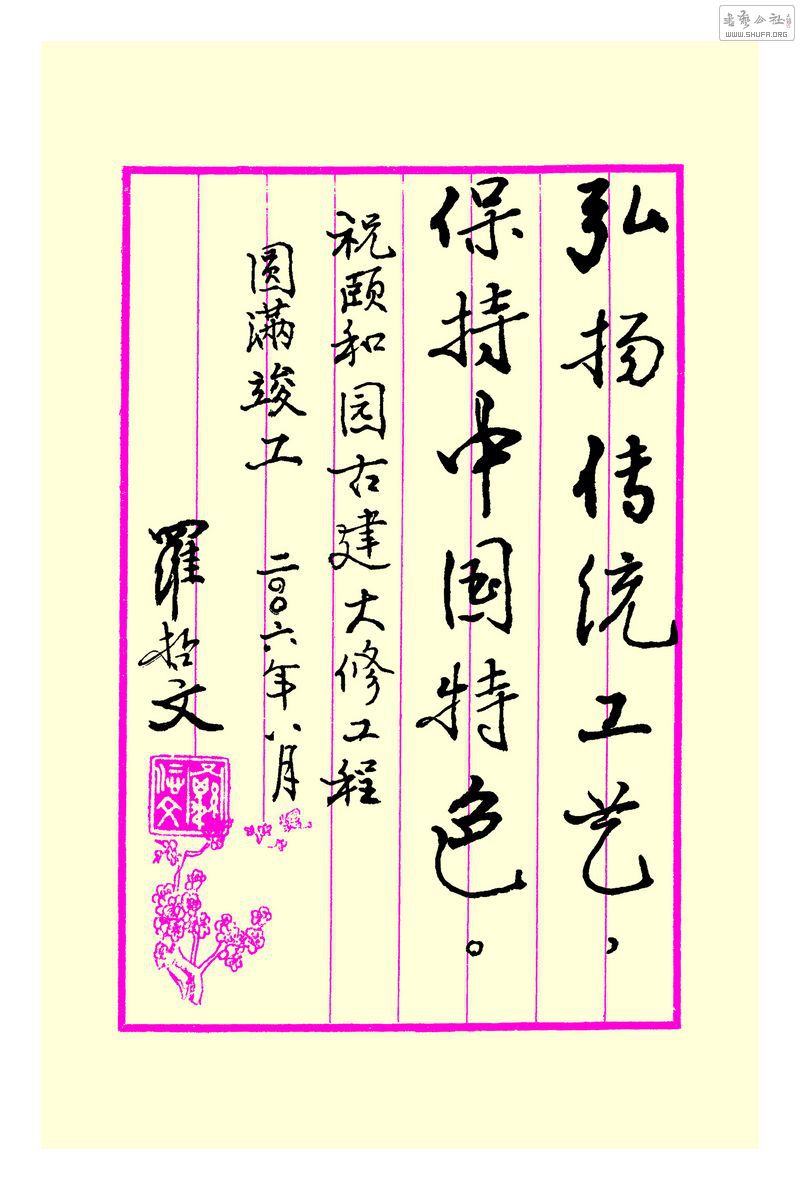 弘扬传统工艺，
保持中国特色。
祝颐和园古建大修工程
圆满竣工 二〇〇六年八月
罗哲文
書艺公社
WWW.SHUFA.ORG